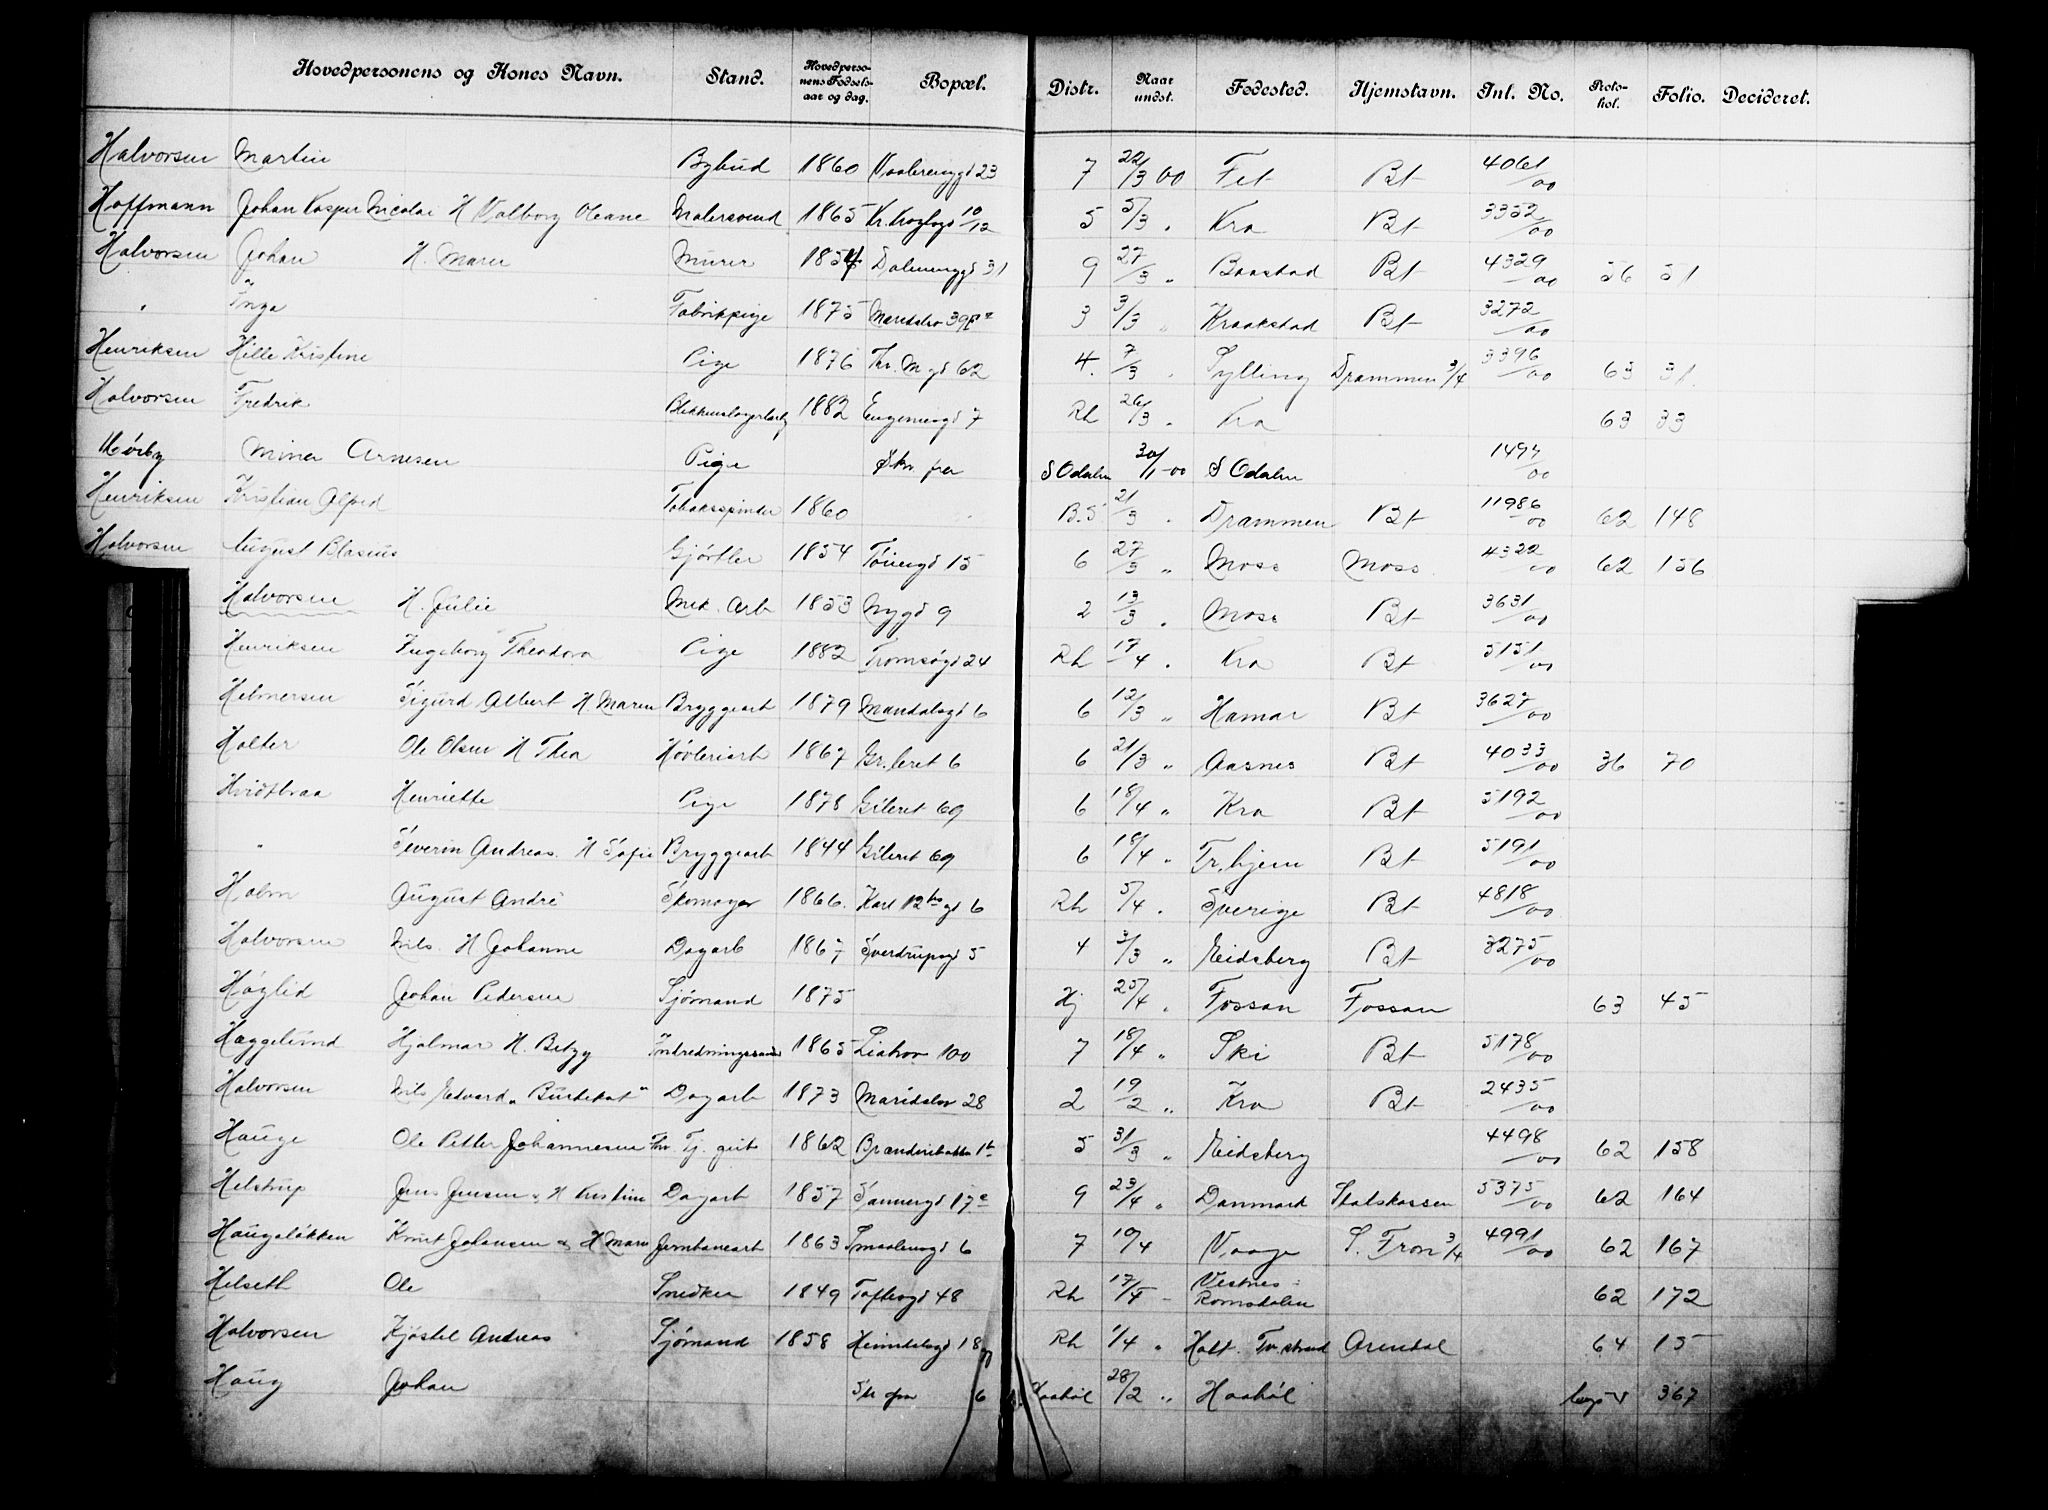 Hovedpersonens og Kones Navn. Stand. Hovedperso-nens Fødsels-aar og dag. Bopæl. Distr. Naar undst. Fødested. Hjemstavn. Inl. No. Proto-kol. Folio. Decideret.
Halvorsen Martin Bybud 1860 Vaalerenggd 23 7 22/3 00 Fet Bt 4061/00
Hoffmann Johan Kasper Nicolai H Valborg Oleane Malersvend 1865 Kr. Kroghsgd 10/12 5 5/3 " Kra Bt 3352/00
Halvorsen Johan H. Maren Murer 1854 Dalenenggd 31 9 27/3 " Baastad Bt 4329/00 56 51
" Inga Fabrikpige 1875 Maridalsv 39 3 3/3 " Kraakstad Bt 3272/00
Henriksen Hille Kristine Pige 1876 Thv. M gd 62 4. 7/3 " Sylling Drammen 3/4 3396/00 63 31
Halvorsen Fredrik Blikkenslagerlærl 1882 Eugeniesgd 7 Rh 26/3 " Kra 63 33
Hørby Mina Arnesen Pige Skr fra S Odalen 30/1-00 S Odalen 1497/00
Henriksen Kristian Alfred Tobaksspinder 1860 B.S 21/3 " Drammen Bt 11986/00 62 148
Halvorsen August Blasius Gjørtler 1854 Tøiengd 15 6 27/3 " Moss Moss 4322/00 62 156
Halvorsen H. Julie Mek. Arb 1853 Nygd 9 2 13/3 " Moss Bt 3631/00
Henriksen Ingeborg Theodora Pige 1882 Tromsøgd 24 Rh 17/4 " Kra Bt 5151/00
Helmersen Sigurd Albert H. Maren Bryggearb 1879 Mandalsgd 6 6 12/3 " Hamar Bt 3627/00
Holter Ole Olsen H Thea Høvleriarb 1867 Gr. leret 6 6 21/3 " Aasnes Bt 4033/00 36 70
Hvidtbraa Henriette Pige 1878 Gr leret 69 6 18/4 " Kra Bt 5192/00
" Severin Andreas. H Sofie Bryggearb 1844 Gr leret 69 6 18/4 " Tr.hjem Bt 5191/00
Holm August André Skomager 1866. Karl 12tes gd 6 Rh 5/4 " Sverige Bt 4818/00
Halvorsen Nils. H Johanne Dagarb 1867 Sverdrupsgd 5 4 3/3 " Eidsberg Bt 3275/00
Høglid Johan Pedersen Sjømand 1875 Hj 25/4 " Fossan Fossan 63 45
Hæggelund Hjalmar H. Betzy Indredningssned 1865 Liabrov 100 7 18/4 " Ski Bt 5178/00
Halvorsen Nils Edvard "Burtekat" Dagarb 1873 Maridalsv 28 2 19/2 " Kra Bt 2435/00
Hauge Ole Petter Johannesen Thv Tj. gut 1862 Brænderibakken 1b 5 31/3 " Eidsberg 4498/00 62 158
Helstrup Jens Jensen & H Kristine Dagarb 1857 Sannergd 17c 9 23/4 " Danmark Statskassen 5375/00 62 164
Haugsløkken Knut Johansen & H Mari Jernbanearb 1863 Smaalensgd 6 7 10/4 Vaage S. Fron 3/4 4991/00 62 167
Helseth Ole Snedker 1849 Toftesgd 48 Rh 17/5 - Vestnes - Romsdalen 62 172
Halvorsen Kjøstel Andreas Sjømand 1858 Heimdalsgd 18 Rh 1/4 " Holt. Tv.strand Arendal 64 15
Haug Johan Sk fra 6 Haabøl 28/2 " Haabøl 367